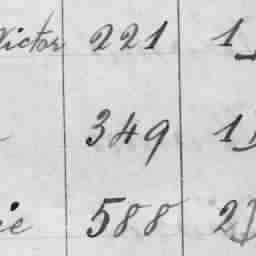 Victor 221 1
349 1
588 2